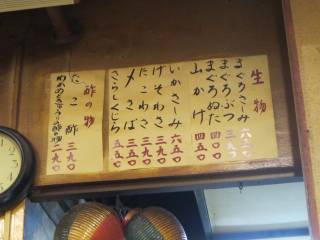 生物
まぐろさしみ 六五〇
まぐろぶつ 三九〇
まぐろぬた 四〇〇
山かけ 四五〇
いかさしみ 六五〇
げそわさ 三九〇
たこわさ 三九〇
〆さば 五五〇
さらしくじら 五五〇
酢の物
たこ酢 三九〇
二九〇